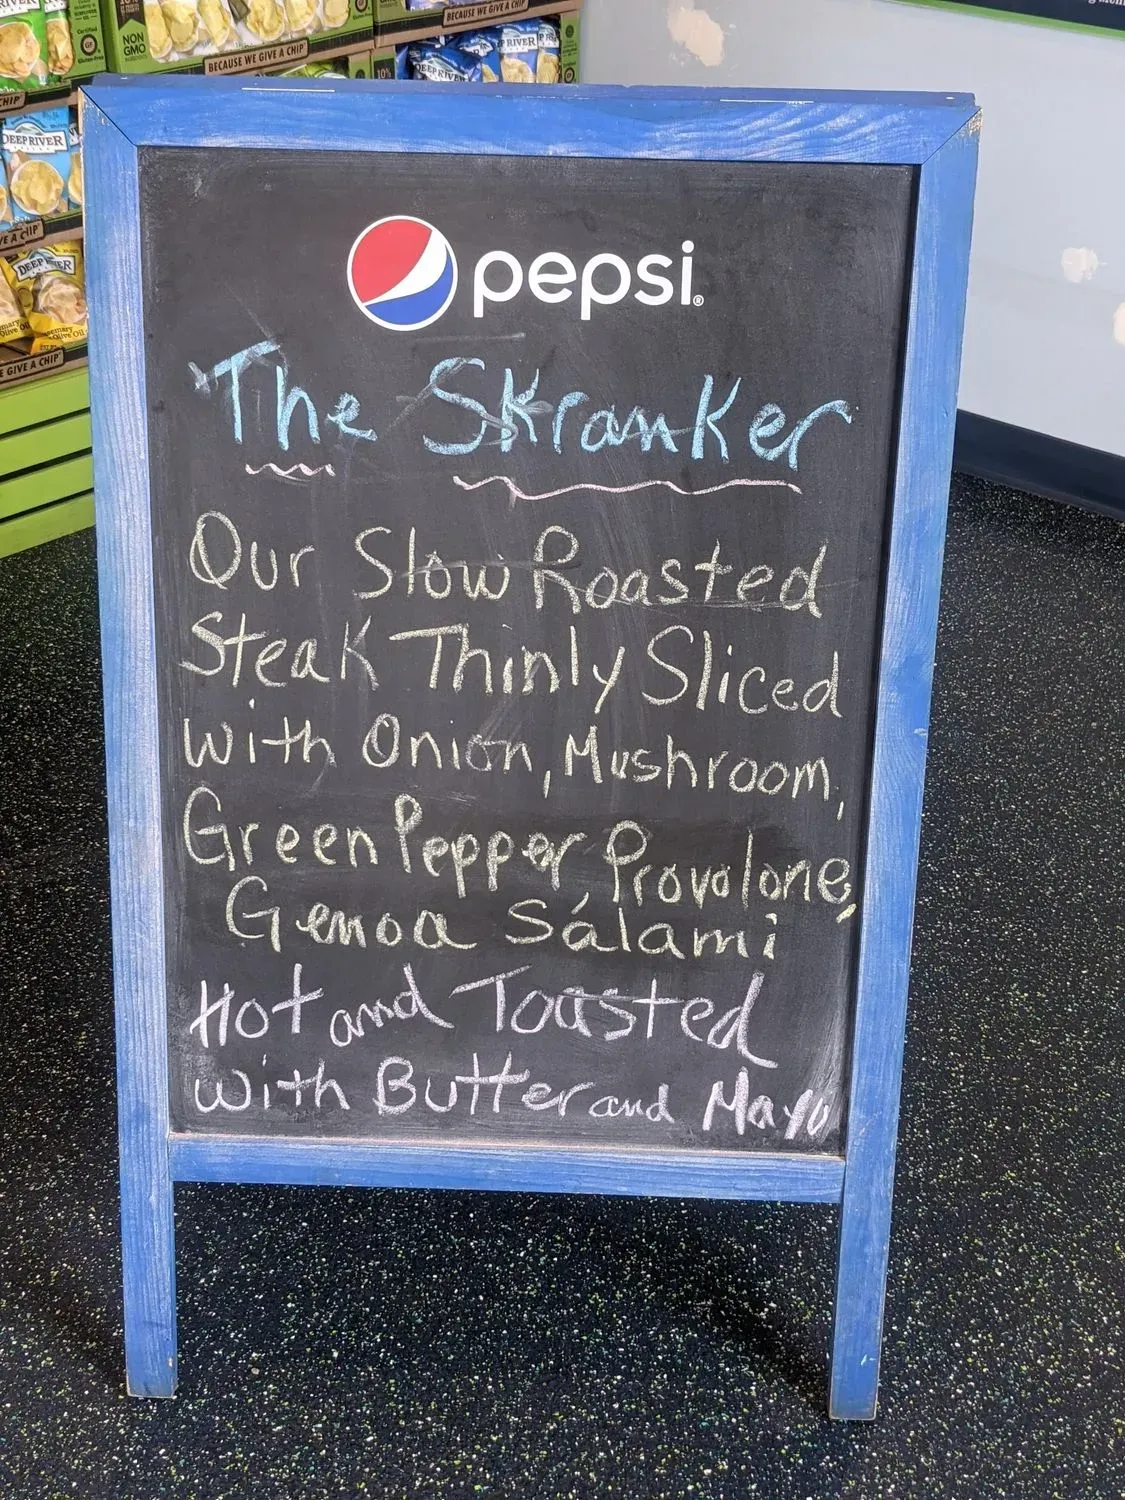 DEEP RIVER
NON
GMO
Certified
Gluten-Free
BECAUSE WE GIVE A CHIP
BECAUSE WE GIVE A CHIP
DEEP RIVER
P RIVER
10%
CHIP
DEEP RIVER
VE A CHIP
DEEP RIVER
Rosemary
Olive Oil
E GIVE A CHIP
pepsi®
The Skranker
Our Slow Roasted
Steak Thinly Sliced
with Onion, Mushroom,
Green Pepper, Provolone,
Genoa Sálami
Hot and Toasted
with Butter and Mayo